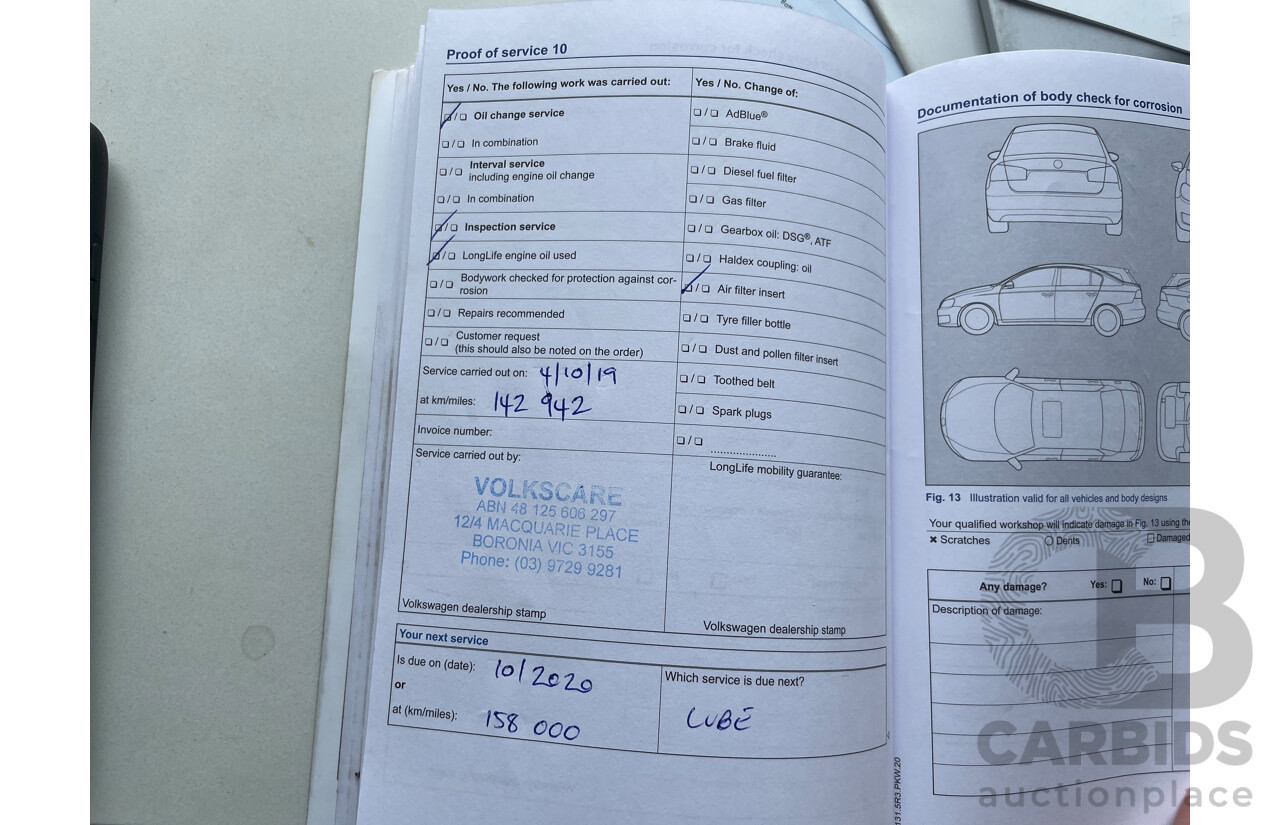 Proof of service 10
Yes / No. The following work was carried out:
❑ / ❑ Oil change service
❑ / ❑ In combination
❑ / ❑ Interval service
including engine oil change
❑ / ❑ In combination
❑ / ❑ Inspection service
❑ / ❑ LongLife engine oil used
❑ / ❑ Bodywork checked for protection against cor-
rosion
❑ / ❑ Repairs recommended
❑ / ❑ Customer request
(this should also be noted on the order)
Service carried out on: 4/10/19
at km/miles: 142 942
Invoice number:
Service carried out by:
VOLKSCARE
ABN 48 125 606 297
12/4 MACQUARIE PLACE
BORONIA VIC 3155
Phone: (03) 9729 9281
Volkswagen dealership stamp
Yes / No. Change of:
❑ / ❑ AdBlue®
❑ / ❑ Brake fluid
❑ / ❑ Diesel fuel filter
❑ / ❑ Gas filter
❑ / ❑ Gearbox oil: DSG®, ATF
❑ / ❑ Haldex coupling: oil
❑ / ❑ Air filter insert
❑ / ❑ Tyre filler bottle
❑ / ❑ Dust and pollen filter insert
❑ / ❑ Toothed belt
❑ / ❑ Spark plugs
❑ / ❑ ....................
LongLife mobility guarantee:
Volkswagen dealership stamp
Your next service
Is due on (date): 10/2020
or
at (km/miles): 158 000
Which service is due next?
LUBE
Documentation of body check for corrosion
Fig. 13 Illustration valid for all vehicles and body designs
Your qualified workshop will indicate damage in Fig. 13 using the
✖ Scratches ○ Dents ❑ Damaged
Any damage? Yes: ❑ No: ❑
Description of damage:
131.5R3.PKW.20
CARBIDS
auctionplace